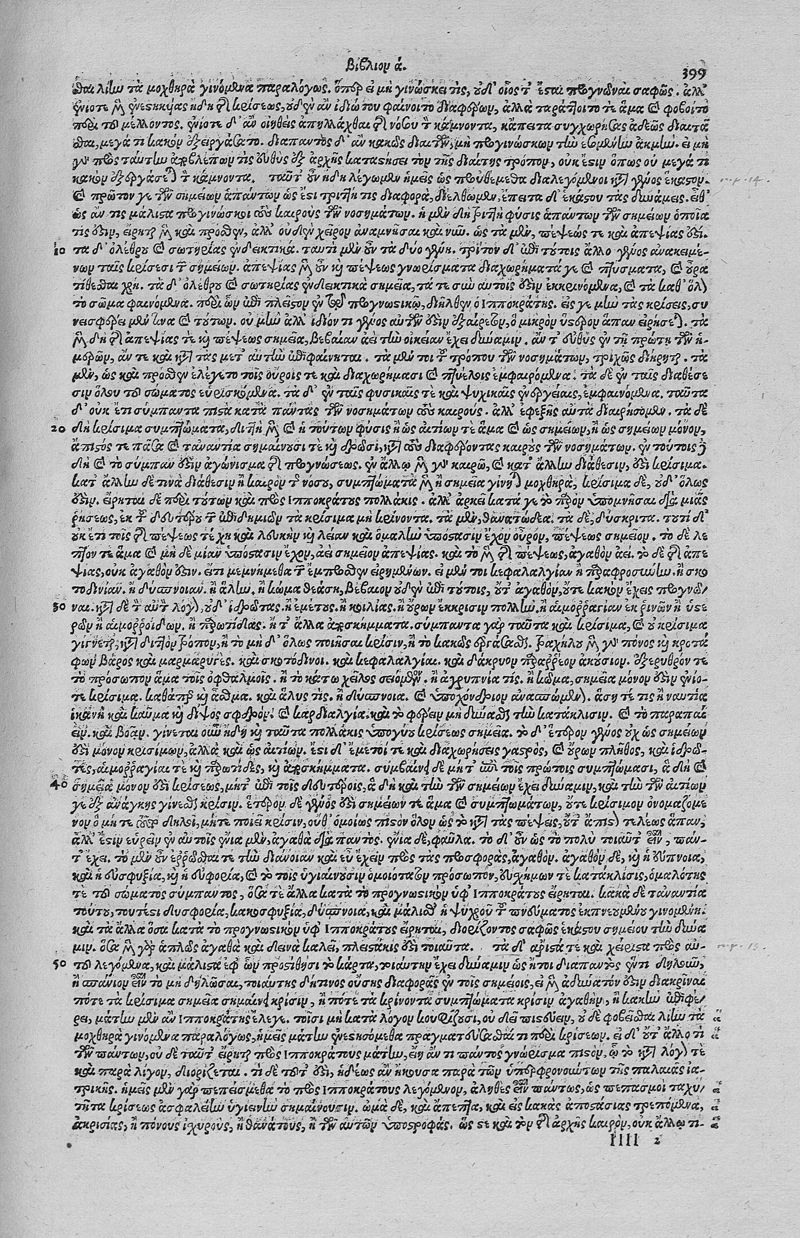 Βιβλίον ά.
399
θαι λίαν τὰ μοχθηρὰ γινόμενα παραλόγως. ὅπερ εἰ μὴ γινώσκει τις, οὐδ' οἷός τ' ἔσται προγνῶναι σαφῶς. ἀλλ'
ἐνίοτε μὲν ἐνεστηκυίας ἤδη τῆς κρίσεως, οὐδὲν ἂν ἰδιώτου φαίνοιτο διαφέρων, ἀλλὰ ταράττοιτό τε ἅμα καὶ φοβοῖτο
περὶ τοῦ μέλλοντος. ἐνίοτε δ' ἂν οἰηθεὶς ἀπηλλάχθαι τῆς νόσου τὸν κάμνοντα, κἄπειτα συγχωρήσας ἀδεῶς διαιτᾶ
σθαι, μέγα τι κακὸν ἐξειργάσατο. διαπαντὸς δ' ἂν κακῶς διαιτῴη, μὴ προγινώσκων τὴν ἐσομένην ἀκμήν. εἰ μὴ
γὰρ πρὸς ταύτην ἀποβλέπων τις εὐθὺς ἐξ ἀρχῆς καταστήσει τὸν τῆς διαίτης τρόπον, οὐκ ἔστιν ὅπως οὐ μέγα τι
κακὸν ἐξεργάσεται τὸν κάμνοντα. ταῦτ' οὖν ἤδη λέγωμεν ἡμεῖς ὡς προὐθέμεθα διαλεγόμενοι κατὰ γένος ἕκαστον.
καὶ πρῶτον γε τῶν σημείων ἁπάντων ὡς ἔστι τριττή τις διαφορὰ, διέλθωμεν, ἔπειτα δ' ἑκάστου τὰς δυνάμεις. εἶθ'
ὡς ἄν τις μάλιστα προγινώσκοι τοὺς καιροὺς τῶν νοσημάτων. ἡ μὲν δὴ τριττὴ φύσις ἁπάντων τῶν σημείων ὁποία
τίς ἐστιν, εἴρηται μὲν καὶ πρόσθεν, ἀλλ' οὐδὲν χεῖρον ἀναμνῆσαι καὶ νῦν. ὡς τὰ μὲν, πέψεώς τε καὶ ἀπεψίας ἐστί.
10 τὰ δ' ὀλέθρου καὶ σωτηρίας ἐνδεικτικά. ταυτὶ μὲν οὖν τὰ δύο γένη. τρίτον δ' ἐπὶ τούτοις ἄλλο γένος ἀνακειμέ-
νων ταῖς κρίσεσι τῶν σημείων. ἀπεψίας μὲν οὖν καὶ πέψεως γνωρίσματα διαχωρήματά γε καὶ πτύσματα, καὶ οὖρα
τίθεσθαι χρή. τὰ δ' ὀλέθρου καὶ σωτηρίας ἐνδεικτικὰ σημεῖα, τά τε σὺν αὐτοῖς ἐστιν ἐκκρινόμενα, καὶ τὰ καθ' ὅλον
τὸ σῶμα φαινόμενα. περὶ ὧν ἐπὶ πλεῖστον ἐν τῷ προγνωστικῷ, διῆλθεν ὁ Ἱπποκράτης. εἰς γε μὴν τὰς κρίσεις, συ
νεισφέρει μὲν ἔνια καὶ τούτων. οὐ μὴν ἀλλ' ἴδιόν τι γένος αὐτῶν ἐστιν ἐξαίρετον, ὃ μικρὸν ὕστερον ἅπαν εἰρήσεται. τὰ
μὲν δὴ τῆς ἀπεψίας τε καὶ πέψεως σημεῖα, βεβαίαν ἀεὶ τὴν οἰκείαν ἔχει δύναμιν. ἄν τ' εὐθὺς ἐν τῇ πρώτῃ τῶν ἡ-
μερῶν, ἄν τε καὶ κατὰ τὰς μετ' αὐτὴν ἐπιφαίνηται. τὰ μέν τοι τοῦ τρόπου τῶν νοσημάτων, τριχῶς διῄρηται. τὰ
μὲν, ὡς καὶ πρόσθεν ἐλέγετο τοῖς οὔροις τε καὶ διαχωρήμασι καὶ πτυέλοις ἐμφαινόμενα. τὰ δὲ ἐν ταῖς διαθέσε
σιν ὅλου τοῦ σώματος εὑρισκόμενα. τὰ δ' ἐν ταῖς φυσικαῖς τε καὶ ψυχικαῖς ἐνεργείαις, ἐμφαινόμενα. ταῦτα
δ' οὐκ ἔτι σύμπαντα πιστὰ κατὰ πάντας τῶν νοσημάτων τοὺς καιρούς. ἀλλ' ἐφεξῆς αὐτὰ διαιρήσομεν. τὰ δὲ
20 δὴ κρίσιμα συμπτώματα, διττὴ μὲν καὶ τούτων φύσις ἢ ὡς αἰτίων τε ἅμα καὶ ὡς σημείων, ἢ ὡς σημείων μόνον,
ἄπιστός τε πᾶσα καὶ τἀναντία σημαίνουσά τε καὶ δρῶσα, κατὰ τοὺς διαφέροντας καιροὺς τῶν νοσημάτων. ἐν τούτοις γὰρ
δὴ καὶ τὸ σύμπαν ἐστὶν ἀγώνισμα τῆς προγνώσεως. ἐν ἄλλῳ μὲν γὰρ καιρῷ, καὶ κατ' ἄλλην διάθεσιν, ἐστὶ κρίσιμα.
κατ' ἄλλην δέ τινα διάθεσιν ἢ καιρὸν τῆς νόσου, συμπτώματα μὲν ἢ σημεῖα γίνεται μοχθηρά, κρίσιμα δὲ, οὐδ' ὅλως
ἐστίν. εἴρηται δὲ περὶ τούτων καὶ πρὸς Ἱπποκράτους πολλάκις. ἀλλ' ἀρκεῖ κατά γε τὸ παρὸν ὑπομνῆσαι διὰ μιᾶς
ῥήσεως, ἐκ τοῦ δευτέρου τῶν ἐπιδημιῶν τὰ κρίσιμα μὴ κρίνοντα. τὰ μὲν, θανατώδεα. τὰ δὲ, δύσκριτα. τουτὶ δ'
οὐκ ἔτι τοῖς τῆς πέψεως τό τε λευκὴν καὶ λείαν καὶ ὁμαλὴν ὑπόστασιν ἔχον οὖρον, πέψεως σημεῖον. τὸ δὲ λε
πτόν τε ἅμα καὶ μὴ δὲ μίαν ὑπόστασιν ἔχον, ἀεὶ σημεῖον ἀπεψίας. καὶ τὸ μὲν τῆς πέψεως, ἀγαθὸν ἀεί. τὸ δὲ τῆς ἀπε
ψίας, οὐκ ἀγαθόν ἐστιν. ἔτι μεμνήμεθα τῶν ἔμπροσθεν εἰρημένων. εἰ μέν τοι κεφαλαλγίαν ἢ παραφροσύνην, ἢ σκο
τοδινίαν. ἢ δύσπνοιαν. ἢ ἄλυν, ἢ κῶμα θεάσῃ, βέβαιον οὐδὲν ἐπὶ τούτοις, οὔτ' ἀγαθὸν, οὔτε κακὸν ἔχεις προγνῶ
30 ναι. κατὰ δὲ τὸν αὐτὸν λόγον, οὐδ' ἱδρῶτας. ἢ ἐμέτους. ἢ κοιλίας. ἢ οὔρων ἔκκρισιν πολλὴν. ἢ αἱμορραγίαν ἐκ ῥινῶν ἢ ὑστέ
ρων ἢ αἱμορροΐδων. ἢ παρωτίδας. ἤ τ' ἄλλα ἀποσκήμματα. σύμπαντα γὰρ ταῦτα καὶ κρίσιμα, καὶ οὐ κρίσιμα
γίγνεται, κατὰ διττὸν τρόπον, ἢ τὸ μὴ δ' ὅλως ποιῆσαι κρίσιν, ἢ τὸ κακῶς ἐργάσασθαι. τραχήλου μὲν γὰρ πόνος καὶ κροτά
φων βάρος καὶ μαρμαρυγές. καὶ σκοτόδινοι. καὶ κεφαλαλγίαι. καὶ δάκρυον παραρρέον ἀκούσιον. ἐξέρυθρόν τε
τὸ πρόσωπον ἅμα τοῖς ὀφθαλμοῖς. ἢ τὸ κάτω χεῖλος σειόμενον. ἢ ἀγρυπνία τις. ἢ κῶμα, σημεῖα μόνον ἐστὶν ἐνίο-
τε κρίσιμα. καθάπερ καὶ ἄσθμα. καὶ ἄλυς τις. ἢ δύσπνοια. καὶ ὑποχόνδριον ἀνασπώμενον. ἄση τέ τις ἢ ναυτία
ἱκανὴ καὶ καῦμα καὶ δίψος σφοδρόν. καὶ καρδιαλγία. καὶ τὸ φέρειν μὴ δύνασθαι τὴν κατάκλισιν. καὶ τὸ παραπαί
ειν. καὶ βοᾶν. γίνεται οὖν ἤδη καὶ ταῦτα πολλάκις ὑπόγυου κρίσεως σημεῖα. τὸ δ' ἕτερον γένος οὐχ ὡς σημείων
ἐστὶ μόνον κρισίμων, ἀλλὰ καὶ ὡς αἰτίων. ἔστι δ' ἔμετοί τε καὶ διαχωρήσεις γαστρὸς, καὶ οὔρων πλῆθος, καὶ ἱδρῶ-
τες, αἱμορραγίαι τε καὶ παρωτίδες, καὶ ἀποσκήμματα. συμβαίνει δὲ μήτ' ἐπὶ τοῖς πρώτοις συμπτώμασι, ἃ δὴ καὶ
40 σημεῖα μόνον ἐστὶ κρίσεως, μήτ' ἐπὶ τοῖς δευτέροις, ἃ δὴ καὶ τὴν τῶν σημείων ἔχει δύναμιν, καὶ τὴν τῶν αἰτίων
γε ἐξ ἀνάγκης γίνεσθαι κρίσιν. ἕτερον δὲ γένος ἐστὶ σημείων τε ἅμα καὶ συμπτωμάτων, οὔτε κρίσιμον ὀνομαζόμε
νον ὃ μήτε δηλοῖ, μήτε ποιεῖ κρίσιν, οὔθ' ὁμοίως πιστὸν ὅλον ὡς τὸ κατὰ τὰς πέψεις, οὔτ' ἄπιστον τελέως ἅπαν,
ἀλλ' ἔστιν εὑρεῖν ἐν αὐτοῖς ἔνια μὲν, ἀγαθὰ διὰ παντός. ἔνια δὲ, φαῦλα. τὸ δ' οὖν ὡς τὸ πολὺ τοιαῦτ' εἶναι, πάν-
τ' ἔχει. τὸ μὲν οὖν ἐρρῶσθαι τε τὴν διάνοιαν καὶ εὖ ἔχειν πρὸς τὰς προσφορὰς, ἀγαθόν. ἀγαθὸν δὲ, καὶ ἡ εὔπνοια,
καὶ ἡ εὐσφυξία, καὶ ἡ εὐφορία, καὶ τὸ τοῖς ὑγιαίνουσιν ὁμοιότατον πρόσωπον, εὐσχήμων τε κατάκλισις, ὁμαλότης
τε τοῦ σώματος σύμπαντος, ὅσα τε ἄλλα κατὰ τὸ προγνωστικὸν ὑφ' Ἱπποκράτους εἴρηται. κακὰ δὲ τἀναντία
τούτου, τουτέστι δυσφορία, κακοσφυξία, δύσπνοια, καὶ μάλισθ' ἡ ψυχροῦ τοῦ πνεύματος ἐκπνεομένου γινομένη.
καὶ τὰ ἄλλα ὅσα κατὰ τὸ προγνωστικὸν ὑφ' Ἱπποκράτους εἴρηται, διορίζοντος σαφῶς ἑκάστου σημείου τὴν δύνα
μιν. ὅσα μὲν γὰρ ἁπλῶς ἀγαθὰ καὶ δεινὰ καλεῖ, πλειστάκις ἐστὶ τοιαῦτα. τὰ δ' ἄριστά τε καὶ χείριστα πρὸς αὐ-
50 τοῦ λεγόμενα, καὶ μάλιστα ἐφ' ὧν προστίθησι τὸ κάρτα, τοιαύτην ἔχει δύναμιν ὡς ἤτοι διαπαντὸς ἔν τι δηλοῦν,
ἢ σπάνιον εἶναι τὸ μὴ δηλῶσαι, τοιαύτης δή τινος οὔσης διαφορᾶς ἐν τοῖς σημείοις, εἰ μὲν ἀδύνατόν ἐστιν διακρῖναι
πότε τὰ κρίσιμα σημεῖα σημαίνει κρίσιν, ἢ πότε τὰ κρίνοντα συμπτώματα κρίσιν ἀγαθὴν, ἢ κακὴν ἐπιφέ
ρει, μάτην μὲν ἂν Ἱπποκράτης ἔλεγε. τοῖσι μὴ κατὰ λόγον κουφίζουσι, οὐ δεῖ πιστεύειν, οὐδὲ φοβεῖσθαι λίαν τὰ
μοχθηρὰ γινόμενα παραλόγως, ἡμεῖς μάτην ἐνεστησόμεθα πραγματεύσασθαί τι περὶ κρίσεων. εἰ δ' οὔτ' ἄλλό τι
τῶν πάντων, οὐδὲ ταῦτ' εἴρηται πρὸς Ἱπποκράτους μάτην, εἴη ἄν τι πάντως γνώρισμα πιστὸν, ᾧ τὸ κατὰ λόγον τε
καὶ παρὰ λόγον, διορίζεται. τί δὲ τοῦτ' ἐστὶ, ἡδέως ἂν ἤκουσα παρὰ τῶν ὑπερφρονούντων τῆς παλαιᾶς ἰα-
τρικῆς. ἡμεῖς μὲν γὰρ πεπείσμεθα τὸ πρὸς Ἱπποκράτους λεγόμενον, ἀληθὲς εἶναι πάντως, ὡς πεπασμοὶ ταχυ
τῆτα κρίσεως ἀσφαλείην ὑγιεινὴν σημαίνουσιν. ὠμὰ δὲ, καὶ ἄπεπτα, καὶ εἰς κακὰς ἀποστάσιας τρεπόμενα,
ἀκρισίας, ἢ πόνους ἰσχυροὺς, ἢ θανάτους, ἢ τῶν αὐτῶν ὑποστροφάς. ὥστε καὶ τὸν τῆς ἀρχῆς καιρὸν, οὐκ ἄλλῳ τι-
IIII 2